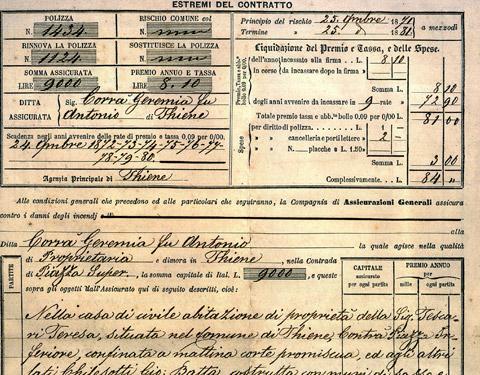 ESTREMI DEL CONTRATTO
POLIZZA
N. 1434.
RISCHIO COMUNE col
N.
RINNOVA LA POLIZZA
N. 1124.
SOSTITUISCE LA POLIZZA
N.
SOMMA ASSICURATA
LIRE 9000
PREMIO ANNUO E TASSA
LIRE 8.10
DITTA ASSICURATA
Sig. Corrà Geremia fu
Antonio di Thiene
Scadenza negli anni avvenire delle rate di premio e tassa 0.09 per 0/00
24 Ombre 1872-73-74-75-76-77-
78-79-80.
Agenzia Principale di Thiene
Principio del rischio 25 Ombre 1871 a mezzodì
Termine 25 1881
Liquidazione del Premio e Tassa, e delle Spese.
Premio, Tassa abb.° bollo 0.09 per 0/00
dell'anno in corso
incassato alla firma L. 8 10
da incassare dopo firma
Somma L. 8 10
degli anni avvenire da incassare in 9 rate 72 90
Totale premio tassa e abb.° bollo 0.09 per 0/00 L. 81 00
Spese
per diritto di polizza L. 1
cancelleria e porti lettere 2
N. placche a L. 1.50
Somma L. 3 00
Complessivamente, L. 84
Alle condizioni generali che precedono ed alle particolari che seguiranno, la Compagnia di Assicurazioni Generali assicura
contro i danni degli incendj
alla
Ditta Corrà Geremia fu Antonio la quale agisce nella qualità
di Proprietaria e dimora in Thiene, nella Contrada
di Piazza Super. la somma capitale di Ital. L. 9000, a queste
sopra gli oggetti dall'Assicurato qui di seguito descritti, cioè:
PARTITE
CAPITALE assicurato per ogni partita
PREMIO ANNUO per ogni partita
mille
Nella casa di civile abitazione di proprietà della Sig. Tesca-
ri Teresa, situata nel Comune di Thiene, Contrà Piazza In-
feriore, confinata a mattina corte promiscua, ed agli altri
lati Chilesotti Gio. Batta, costrutta con muri di sasso e